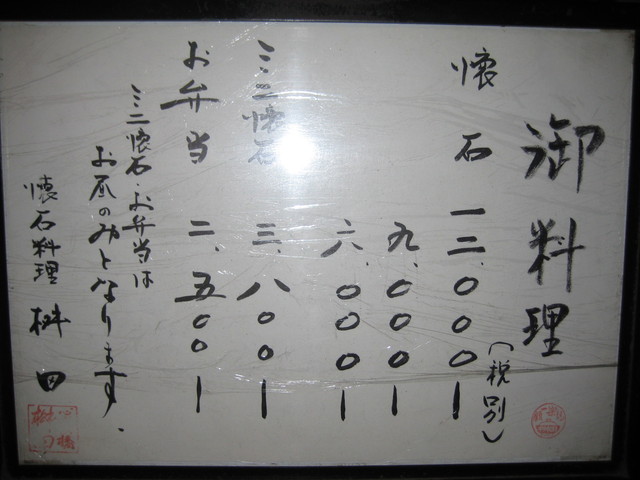 御料理
(税別)
懐石 一二、〇〇〇ー
九、〇〇〇ー
六、〇〇〇ー
ミニ懐石 三、八〇〇ー
お弁当 二、五〇〇ー
ミニ懐石・お弁当は
お昼のみとなります.
懐石料理 桝田